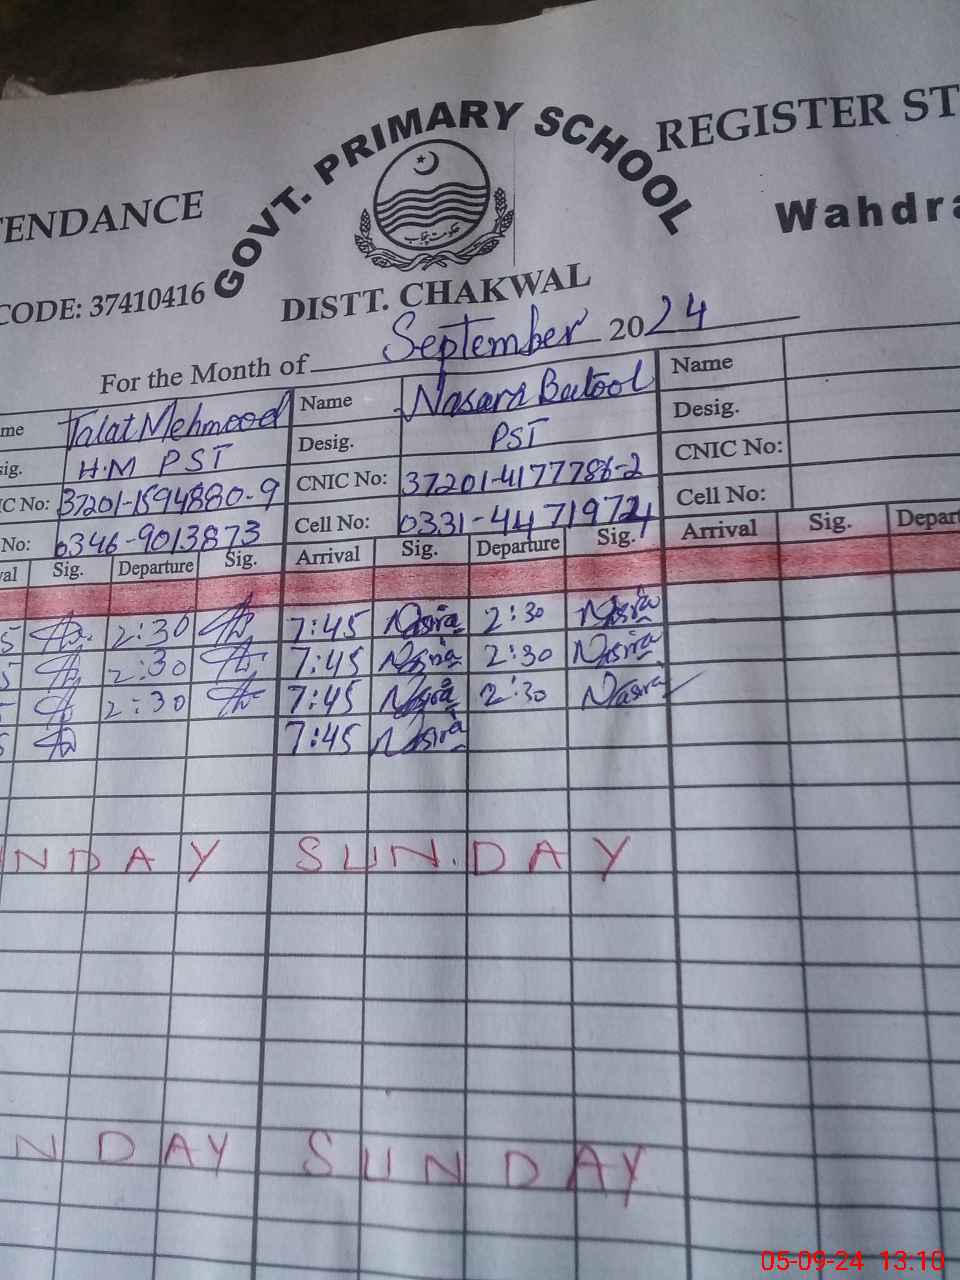 GOVT. PRIMARY SCHOOL
REGISTER ST
TENDANCE
Wahdra
حکومت پنجاب
CODE: 37410416
DISTT. CHAKWAL
For the Month of September 2024
me Talat Mehmood Name Nasara Batool Name
sig. H.M PST Desig. PST Desig.
IC No: 37201-1594880-9 CNIC No: 37201-4177786-2 CNIC No:
No: 0346-9013873 Cell No: 0331-4471972 Cell No:
val Sig. Departure Sig. Arrival Sig. Departure Sig. Arrival Sig. Depart
5 2:30 7:45 Nasira 2:30 Nasira
5 2:30 7:45 Nasira 2:30 Nasira
5 2:30 7:45 Nasira 2:30 Nasira
5 7:45 Nasira
NDAY SUNDAY
NDAY SUNDAY
05-09-24 13:10